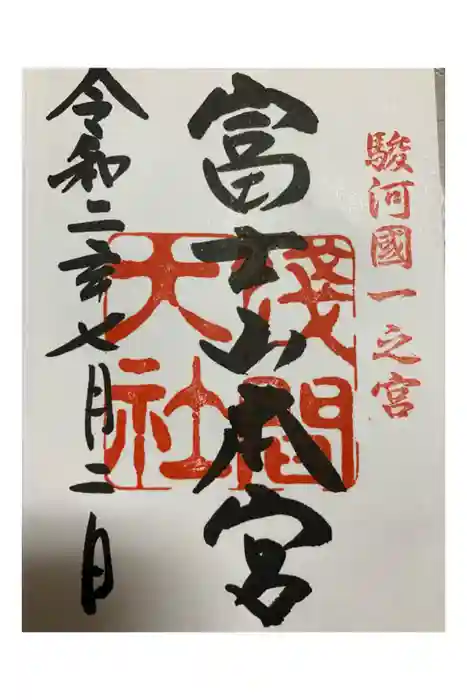 駿河國一之宮
富士山本宮
淺間
大社
令和二年七月二日